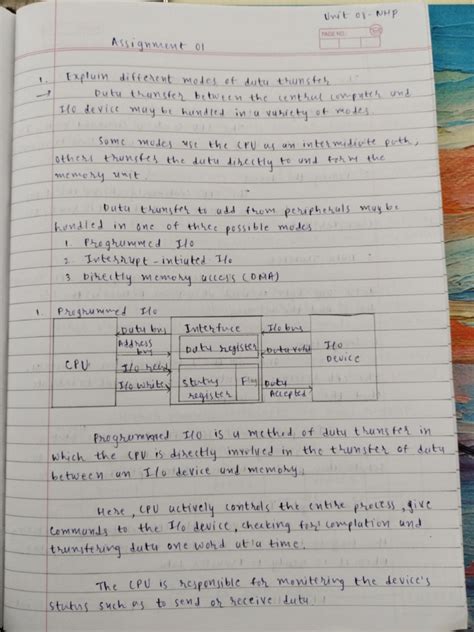 Unit 08 - NHP
PAGE NO.:
Assignment 01
1. Explain different modes of data transfer
→ Data transfer between the central computer and
I/o device may be handled in a variety of modes.
Some modes use the CPU as an intermidiate path,
others transfer the data directly to and form the
memory unit.
Data transfer to add from peripherals may be
handled in one of three possible modes
1. Programmed I/o
2. Interrupt - intiated I/o
3. Directly memory access (DMA)
1. Programmed I/o
CPU
Data bus
Address
bus
I/o read
I/o write
Interface
Data register
Status
register
I/o bus
Data valid
Data
Accepted
I/o
Device
Programmed I/o is a method of data transfer in
which the CPU is directly involved in the transfer of data
between an I/o device and memory.
Here, CPU actively controls the entire process, give
commands to the I/o device, cheking for complation and
transfering data one word at a time.
The CPU is responsible for monitering the device's
status such as to send or receive data.